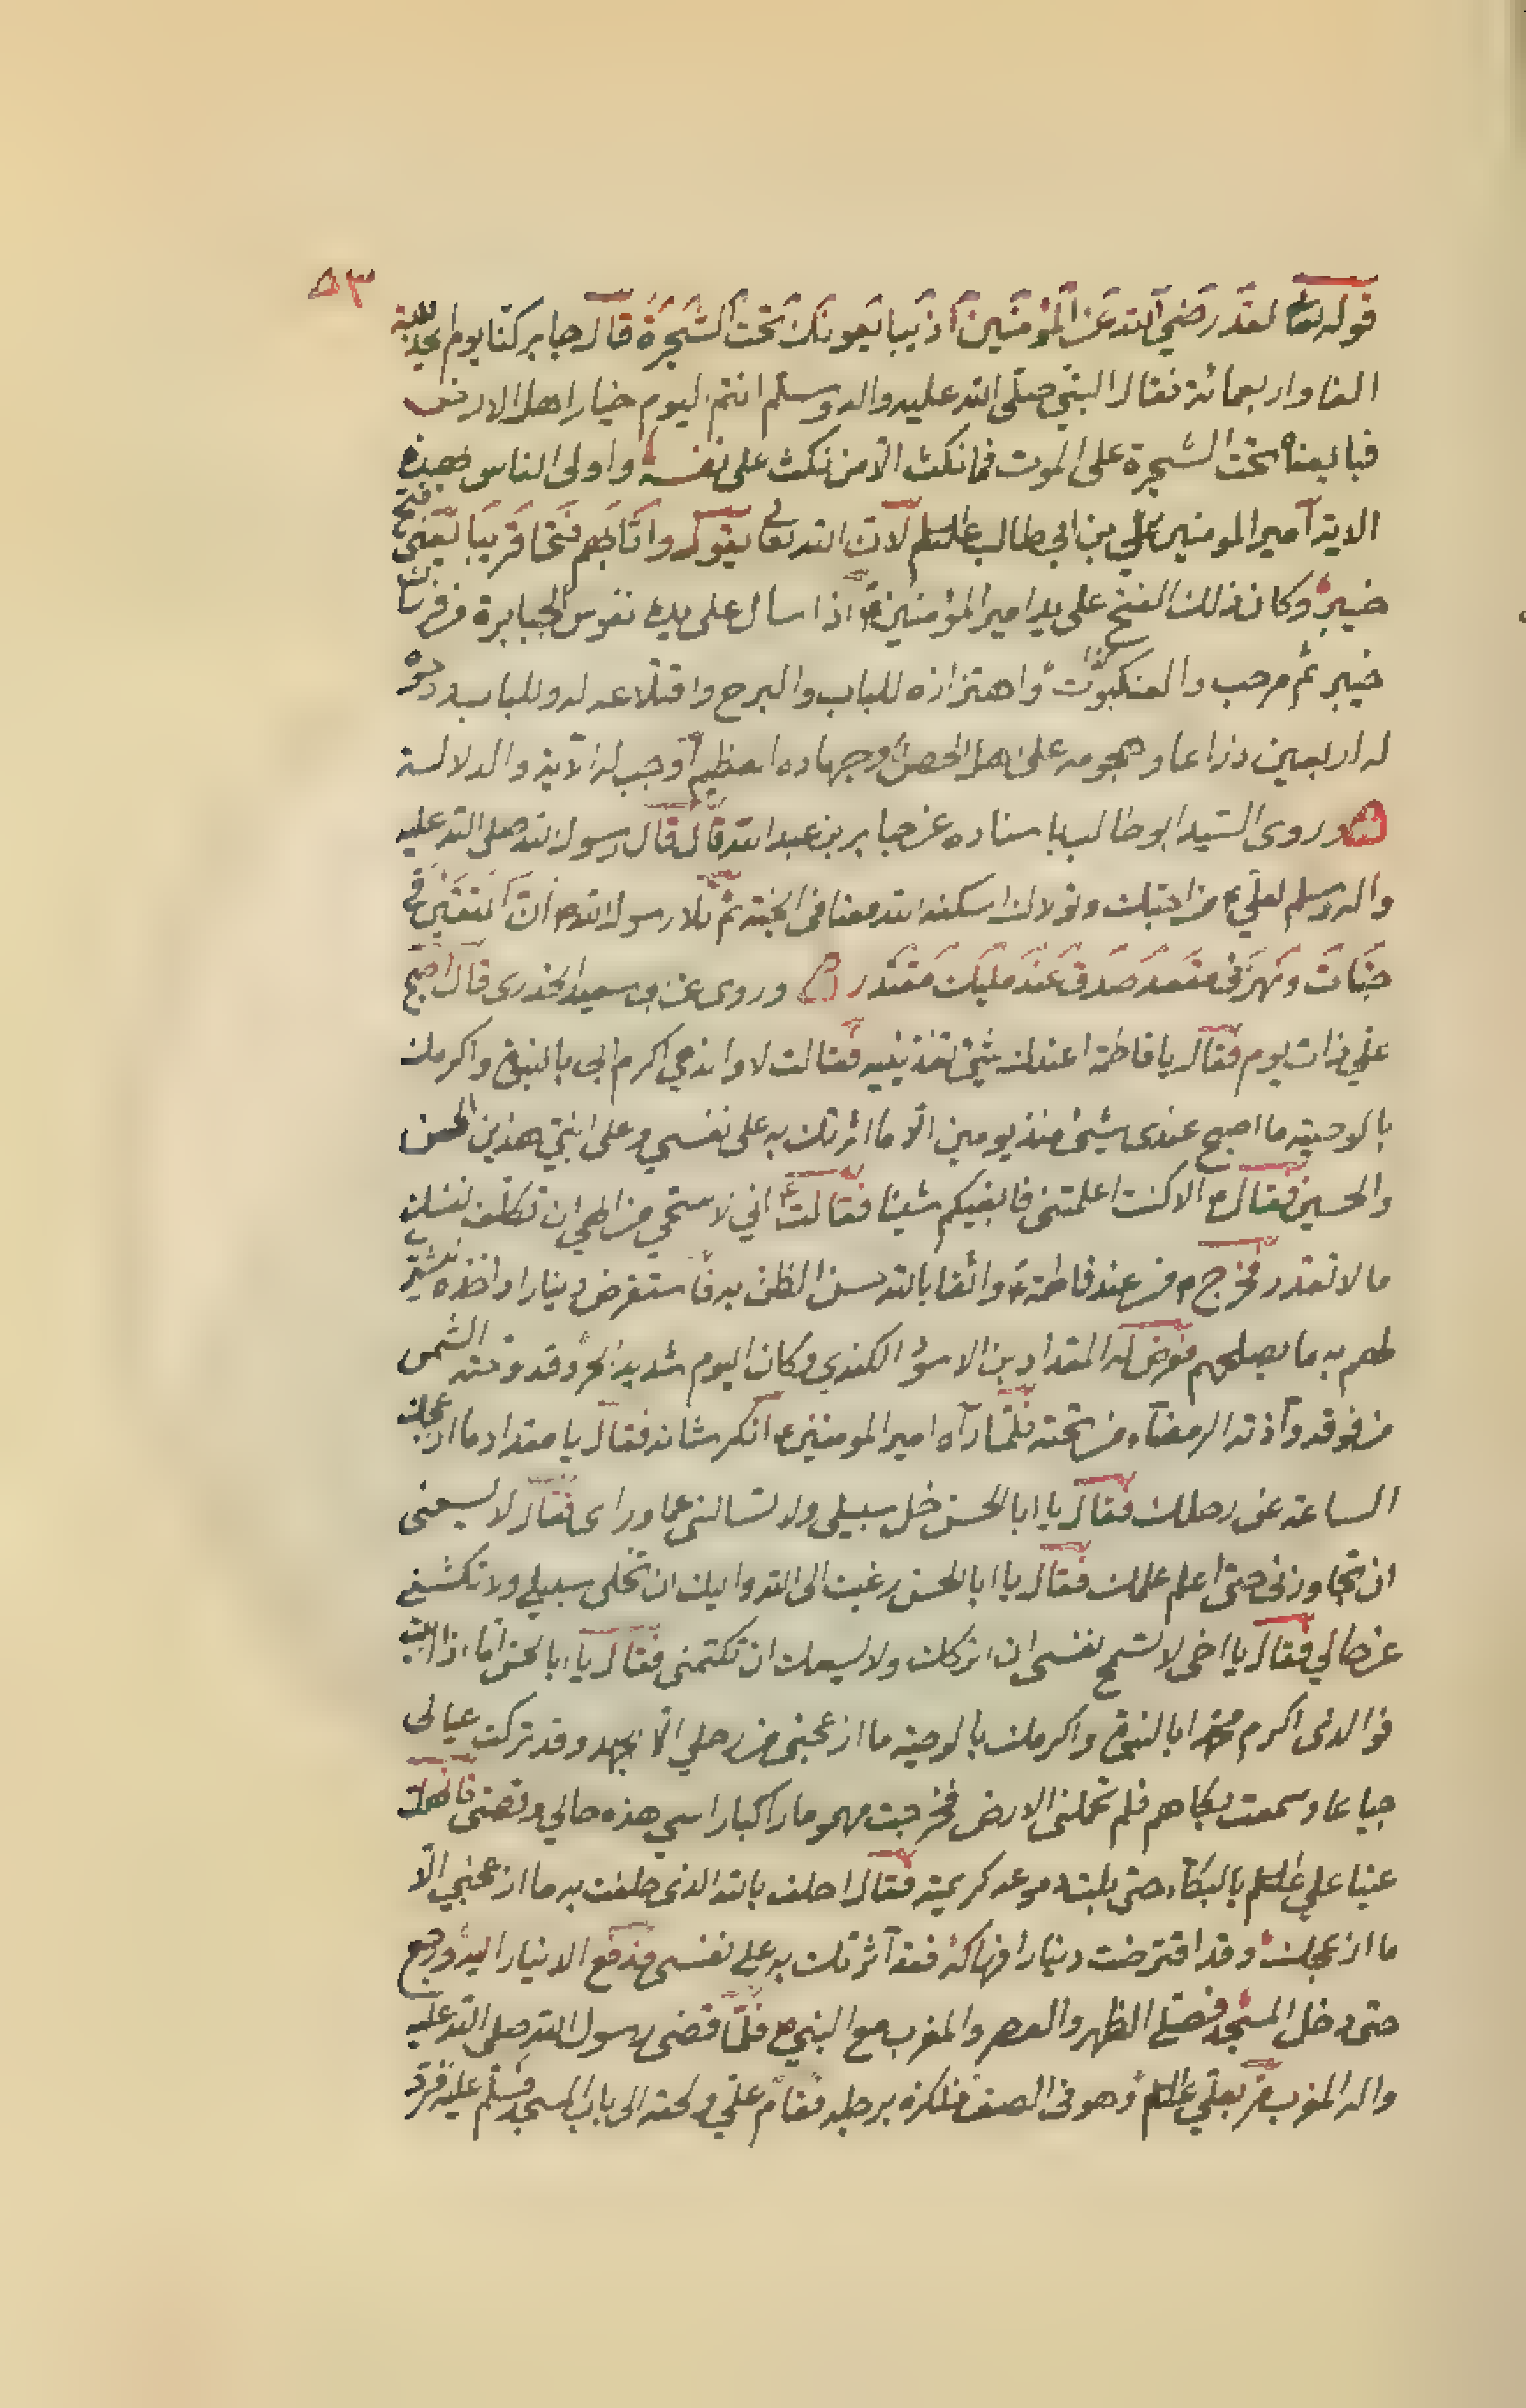 ٥٣
قوله تعا لقد رضي الله عن المؤمنين اذ يبايعونك تحت الشجرة قال جابر كنا يوم الحديبية
الفا واربعمائة فقال النبي صلى الله عليه واله وسلم انتم اليوم خيار اهل الارض
فبايعناه تحت الشجرة على الموت فما نكث الا من نكث على نفسه واولى الناس بهذه
الاية امير المومنين علي بن ابي طالب عليه السلم لان الله تعالى يقول واثابهم فتحا قريبا يعني فتح
خيبر وكان ذلك الفتح على يد امير المؤمنين ع اذا سال على يديه نفوس الجبابرة من فرسان
خيبر ثم مرحب والعنكبوت واهتزازه للباب والبرج واقتلاعه له وللباب ودحوه
له اربعين ذراعا وهجومه على اهل الحصن وجهاده العظيم اوجب له الآية والدلالة
وروى السيد ابو طالب باسناده عن جابر بن عبد الله قال قال رسول الله صلى الله عليه
واله وسلم لعلي ع من احبك وتولاك اسكنه الله معنا في الجنة ثم تلا رسول الله ص ان المتقين في
جنات ونهر في مقعد صدق عند مليك مقتدر وروى عن ابي سعيد الخدري قال اصبح
علي ذات يوم فقال يا فاطمة اعندك شيء تغذينيه فقالت لا والذي اكرم ابي بالنبوة واكرمك
بالوصية ما اصبح عندى شيئ منذ يومين الا ما اثرتك به على نفسي وعلى ابني هذين الحسن
والحسين فقال ع الا كنت اعلمتني فابغيكم شيئا فقالت اني لاستحي من الهي ان تكلف نفسك
ما لا تقدر فخرج ع من عند فاطمة ع واثقا بالله حسن الظن به فاستقرض دينارا واخذه ليشتري
لهم به ما يصلحهم فعرض له المقداد بن الاسود الكندي وكان اليوم شديد الحر وقد وقته الشمس
من فوقه وآذته الرمضآء من تحته فلما رآه امير المومنين ع انكر شانه فقال يا مقداد ما ازعجك
الساعة عن رحلك فقال يا ابا الحسن خل سبيلى ولا تسالني عما وراى فقال لا يسعنى
ان تجاوزنى حتى اعلم علمك فقال يا ابا الحسن رغبت الى الله واليك ان تخلى سبيلي ولا تكشفنى
عن حالي فقال يا اخى لا تسمح نفسى ان اتركك ولا يسعك ان تكتمنى فقال يا ابا الحسن اما اذا ابيت
فوالذى اكرم محمدا بالنبوة واكرمك بالوصية ما ازعجنى من رحلي الا الجهد وقد تركت عيالى
جياعا وسمعت بكاهم فلم تحملنى الارض فخرجت مهموما راكبا راسي هذه حالي وقصتى فانهملت
عينا علي عليه السلم بالبكآء حتى بلت دموعه كريمته فقال احلف بالله الذى حلفت به ما ازعجني الا
ما ازعجك وقد اقترضت دينارا فهاكه فقد آثرتك به على نفسى فدفع الدينار اليه ورجع
حتى دخل المسجد فصلى الظهر والعصر والمغرب مع النبي ص فلما قضى رسول الله صلى الله عليه
واله المغرب مر بعلي عليه السلم وهو في الصف فلكزه برجله فقام علي ولحقه الى باب المسجد فسلم عليه فرد